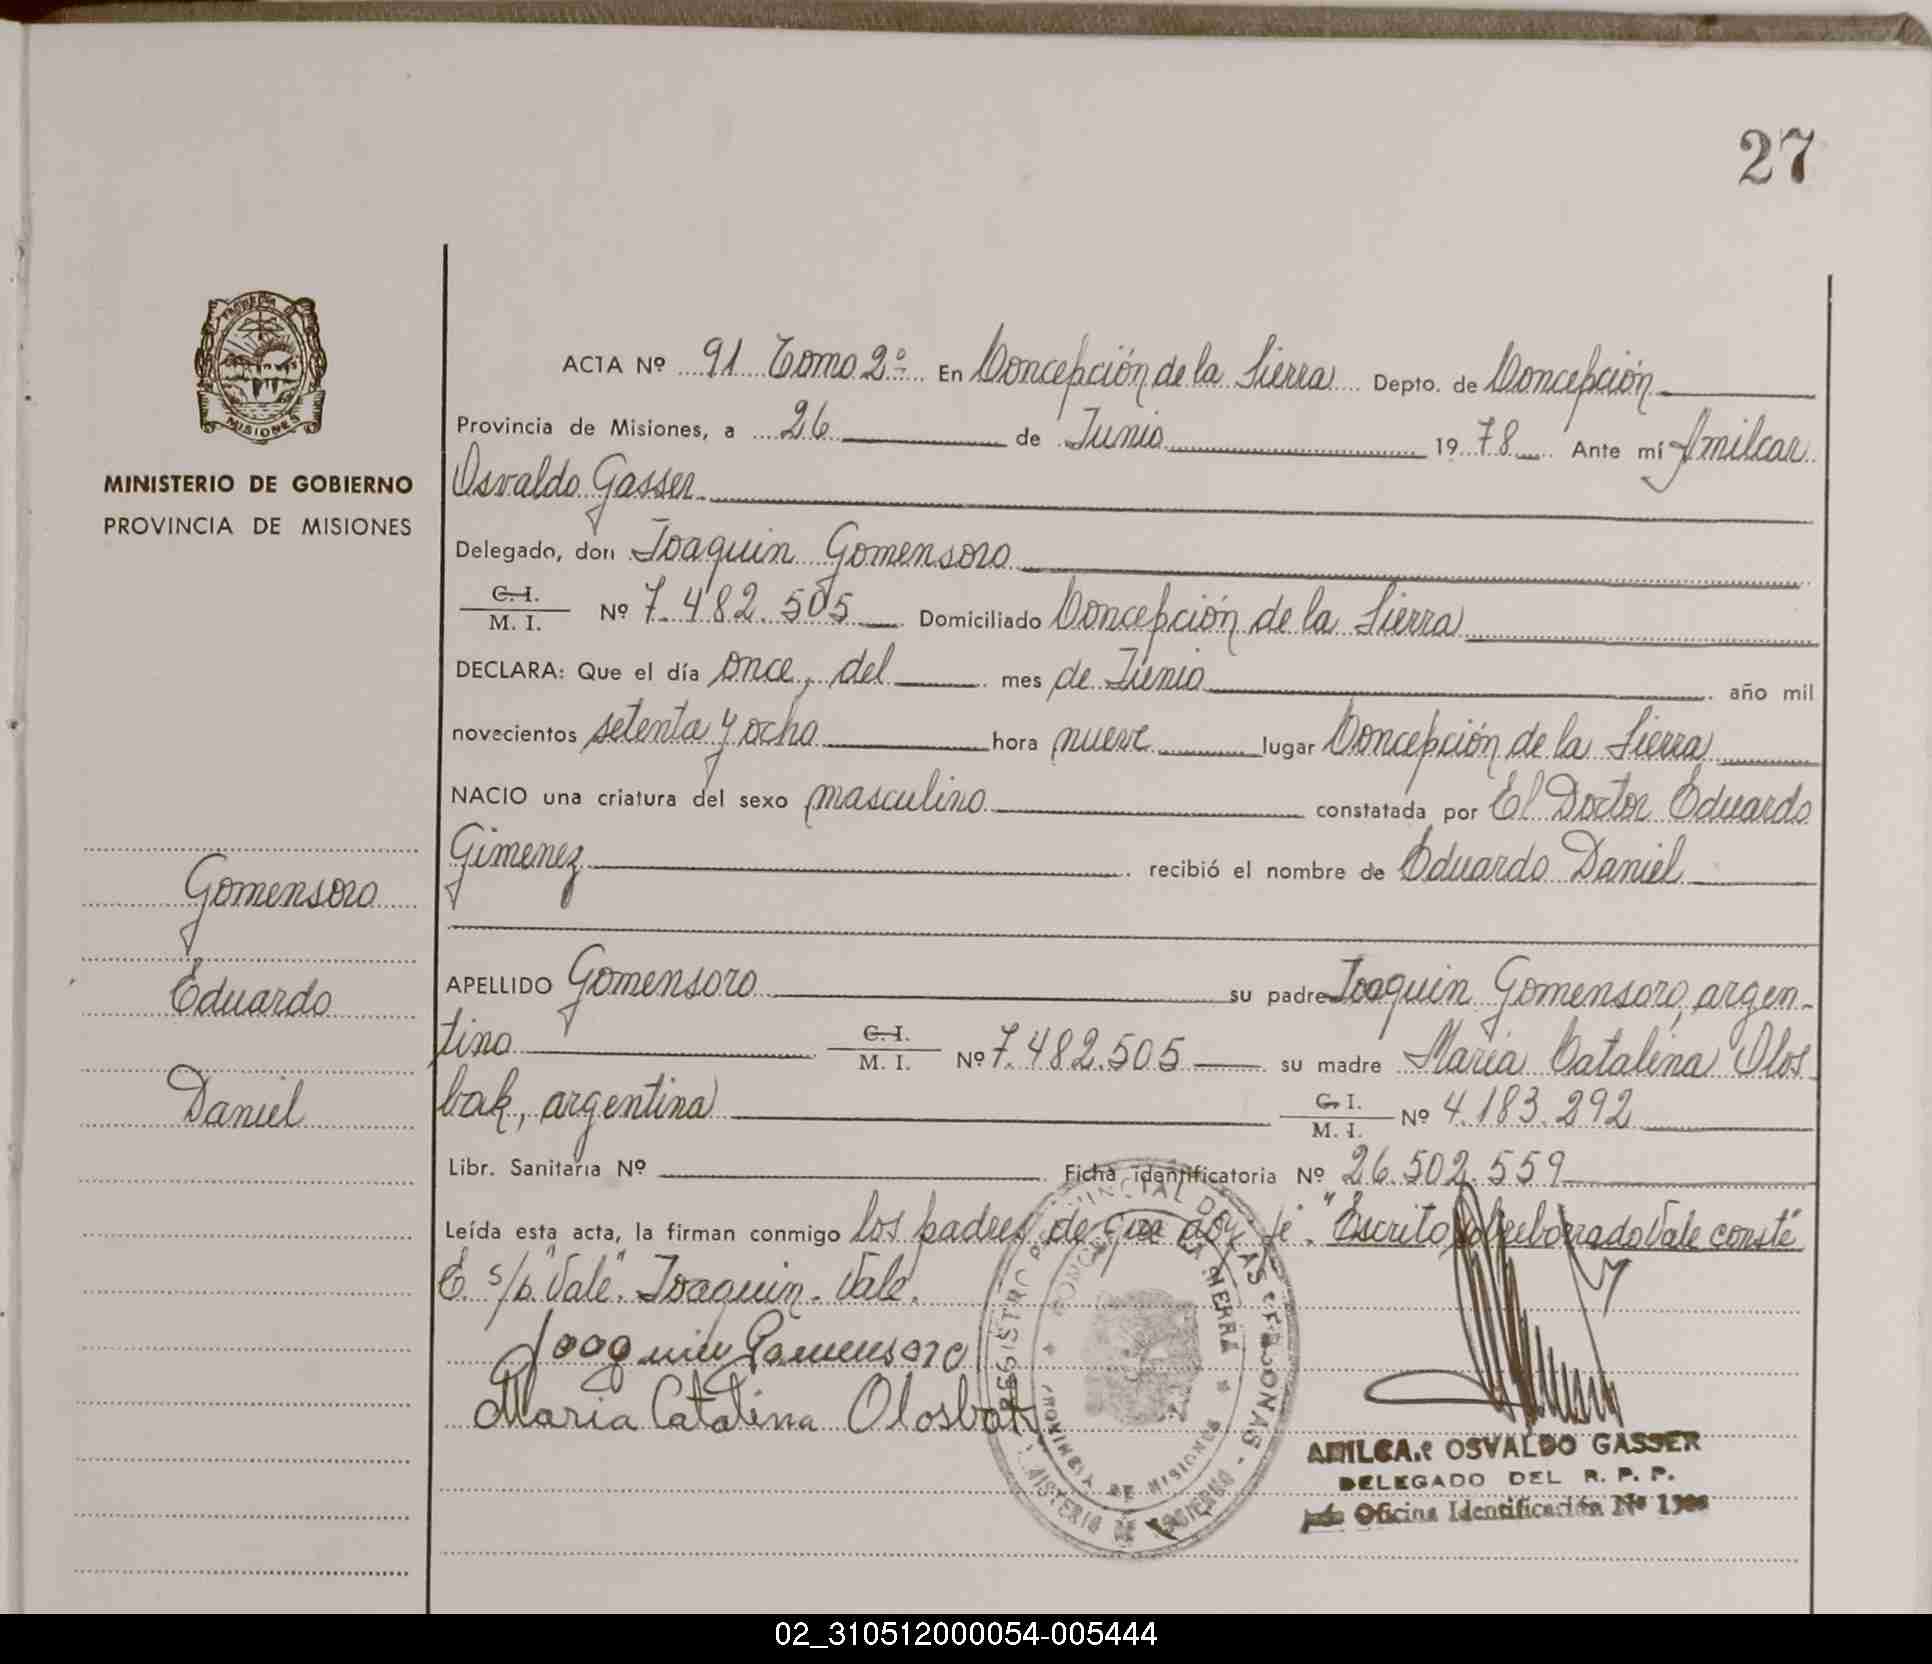 27
PROVINCIA DE
MISIONES
MINISTERIO DE GOBIERNO
PROVINCIA DE MISIONES
Gomensoro
Eduardo
Daniel
ACTA Nº 91 Tomo 2º En Concepción de la Sierra Depto. de Concepción
Provincia de Misiones, a 26 de Junio 1978 Ante mí Amilcar
Osvaldo Gasser
Delegado, don Joaquin Gomensoro
C. I. / M. I. Nº 7.482.505 Domiciliado Concepción de la Sierra
DECLARA: Que el día once, del mes de Junio año mil
novecientos setenta y ocho hora nueve lugar Concepción de la Sierra
NACIO una criatura del sexo masculino constatada por El Doctor Eduardo
Gimenez recibió el nombre de Eduardo Daniel
APELLIDO Gomensoro su padre Joaquin Gomensoro, argen-
tino C. I. / M. I. Nº 7.482.505 su madre Maria Catalina Olos
bak, argentina C. I. / M. I. Nº 4.183.292
Libr. Sanitaria Nº Ficha identificatoria Nº 26.502.559
Leída esta acta, la firman conmigo los padres de que doy fe. "Escrito sobreborrado Vale conste"
E. s/b. "Vale". Joaquin. Vale.
Joaquin Gomensoro
Maria Catalina Olosbak
REGISTRO PROVINCIAL DE LAS PERSONAS
CONCEPCION DE LA SIERRA
PROVINCIA DE MISIONES
MINISTERIO DE GOBIERNO
AMILCAR OSVALDO GASSER
DELEGADO DEL R. P. P.
Oficina Identificación Nº
02_310512000054-005444